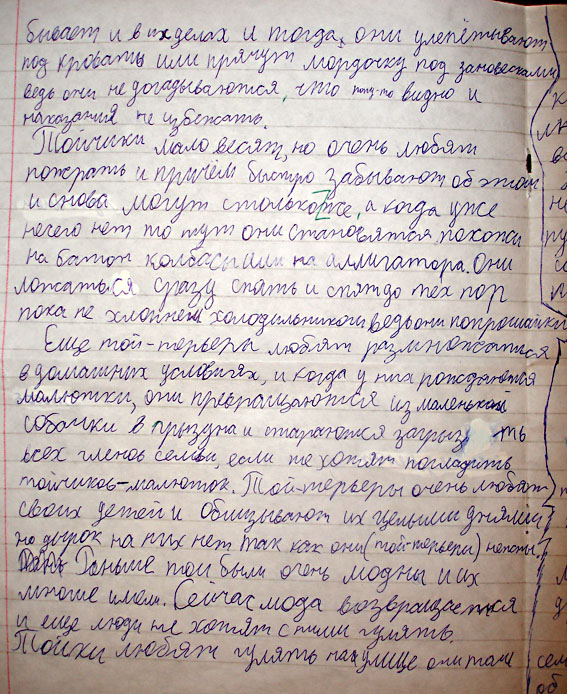 бывает и в их делах и тогда, они улепётывают
под кровать или прячут мордочку под занавесками
ведь они не догадываются, что попу-то видно и
наказания не избежать.
Тойчики мало весят, но очень любят
пожрать и причём быстро забывают об этом
и снова могут столько же, а когда уже
нечего нет то тут они становятся похожи
на батон колбасы или на аллигатора. Они
ложаться сразу спать и спят до тех пор
пока не хлопнеш холодильником ведь они попрошайки
Еще той-терьеры любят размножатся
в домашних условиях, и когда у них рождаются
малютки, они превращаются из маленькой
собачки в грызуна и стараются загрызть
всех членов семьи, если те хотят погладить
тойчиков-малюток. Той-терьеры очень любят
своих детей и облизывают их целыми днями
но дырок на них нет так как они (той-терьеры)
Раньше тои были очень модны и их
многие имели. Сейчас мода возвращается
и еще люди не хотят с ними гулять.
Тойки любят гулять на улице они там